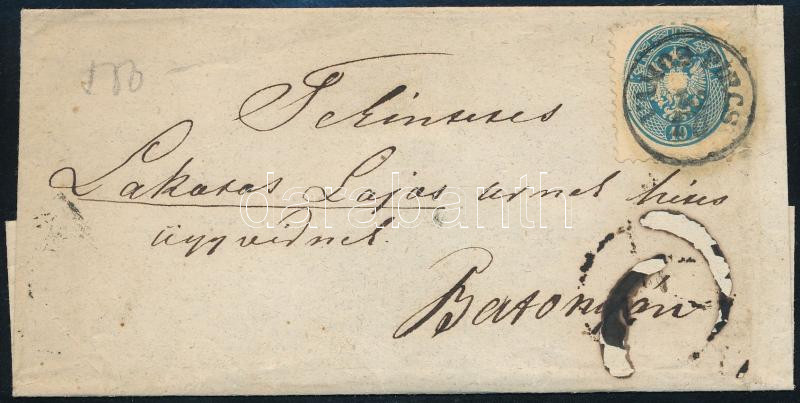 Tekintetes
Lakatos Lajos urnak hites
ügyvédnek
Batonyán
10
darabanth